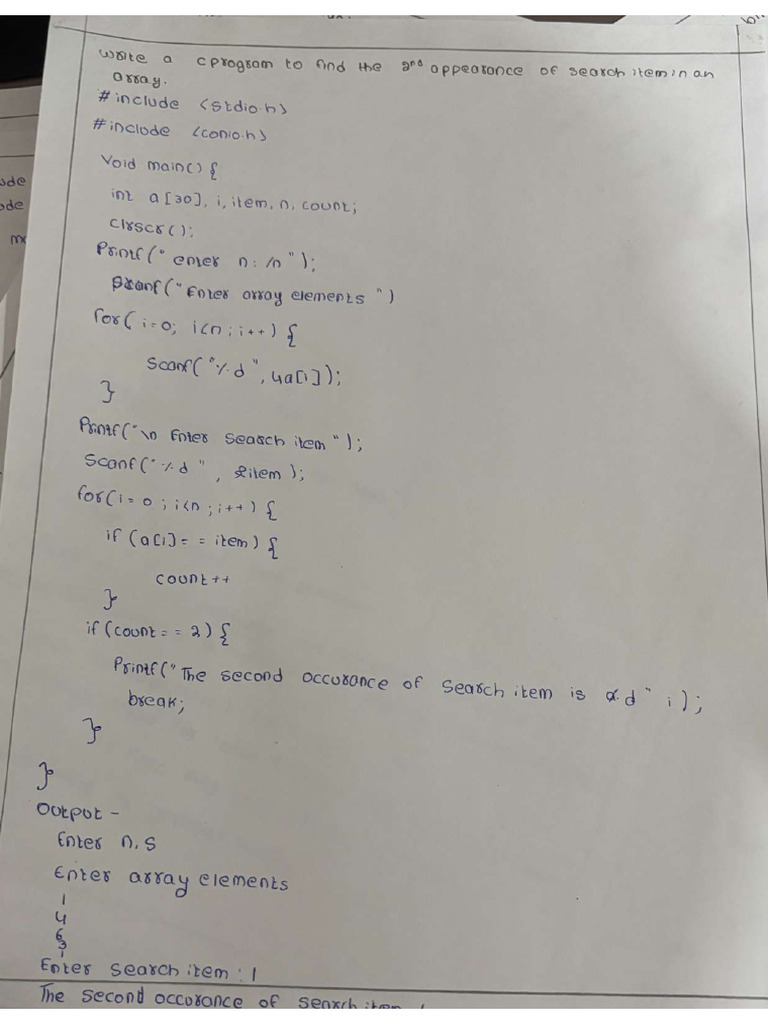 write a c program to find the 2nd appearance of search item in an
array.
#include <stdio.h>
#include <conio.h>
Void main() {
int a[30], i, item, n, count;
clrscr();
Printf(" enter n: /n ");
Scanf("Enter array elements ")
for( i=0; i<n; i++) {
Scanf("%d", &a[i]);
}
Printf("\n Enter search item");
Scanf("%d", &item);
for(i=0; i<n; i++) {
if (a[i]== item) {
count++
}
if(count== 2) {
Printf("The second occurance of search item is %d" i);
break;
}
}
Output -
Enter n, 5
Enter array elements
1
4
6
3
1
Enter search item : 1
The second occurance of search item